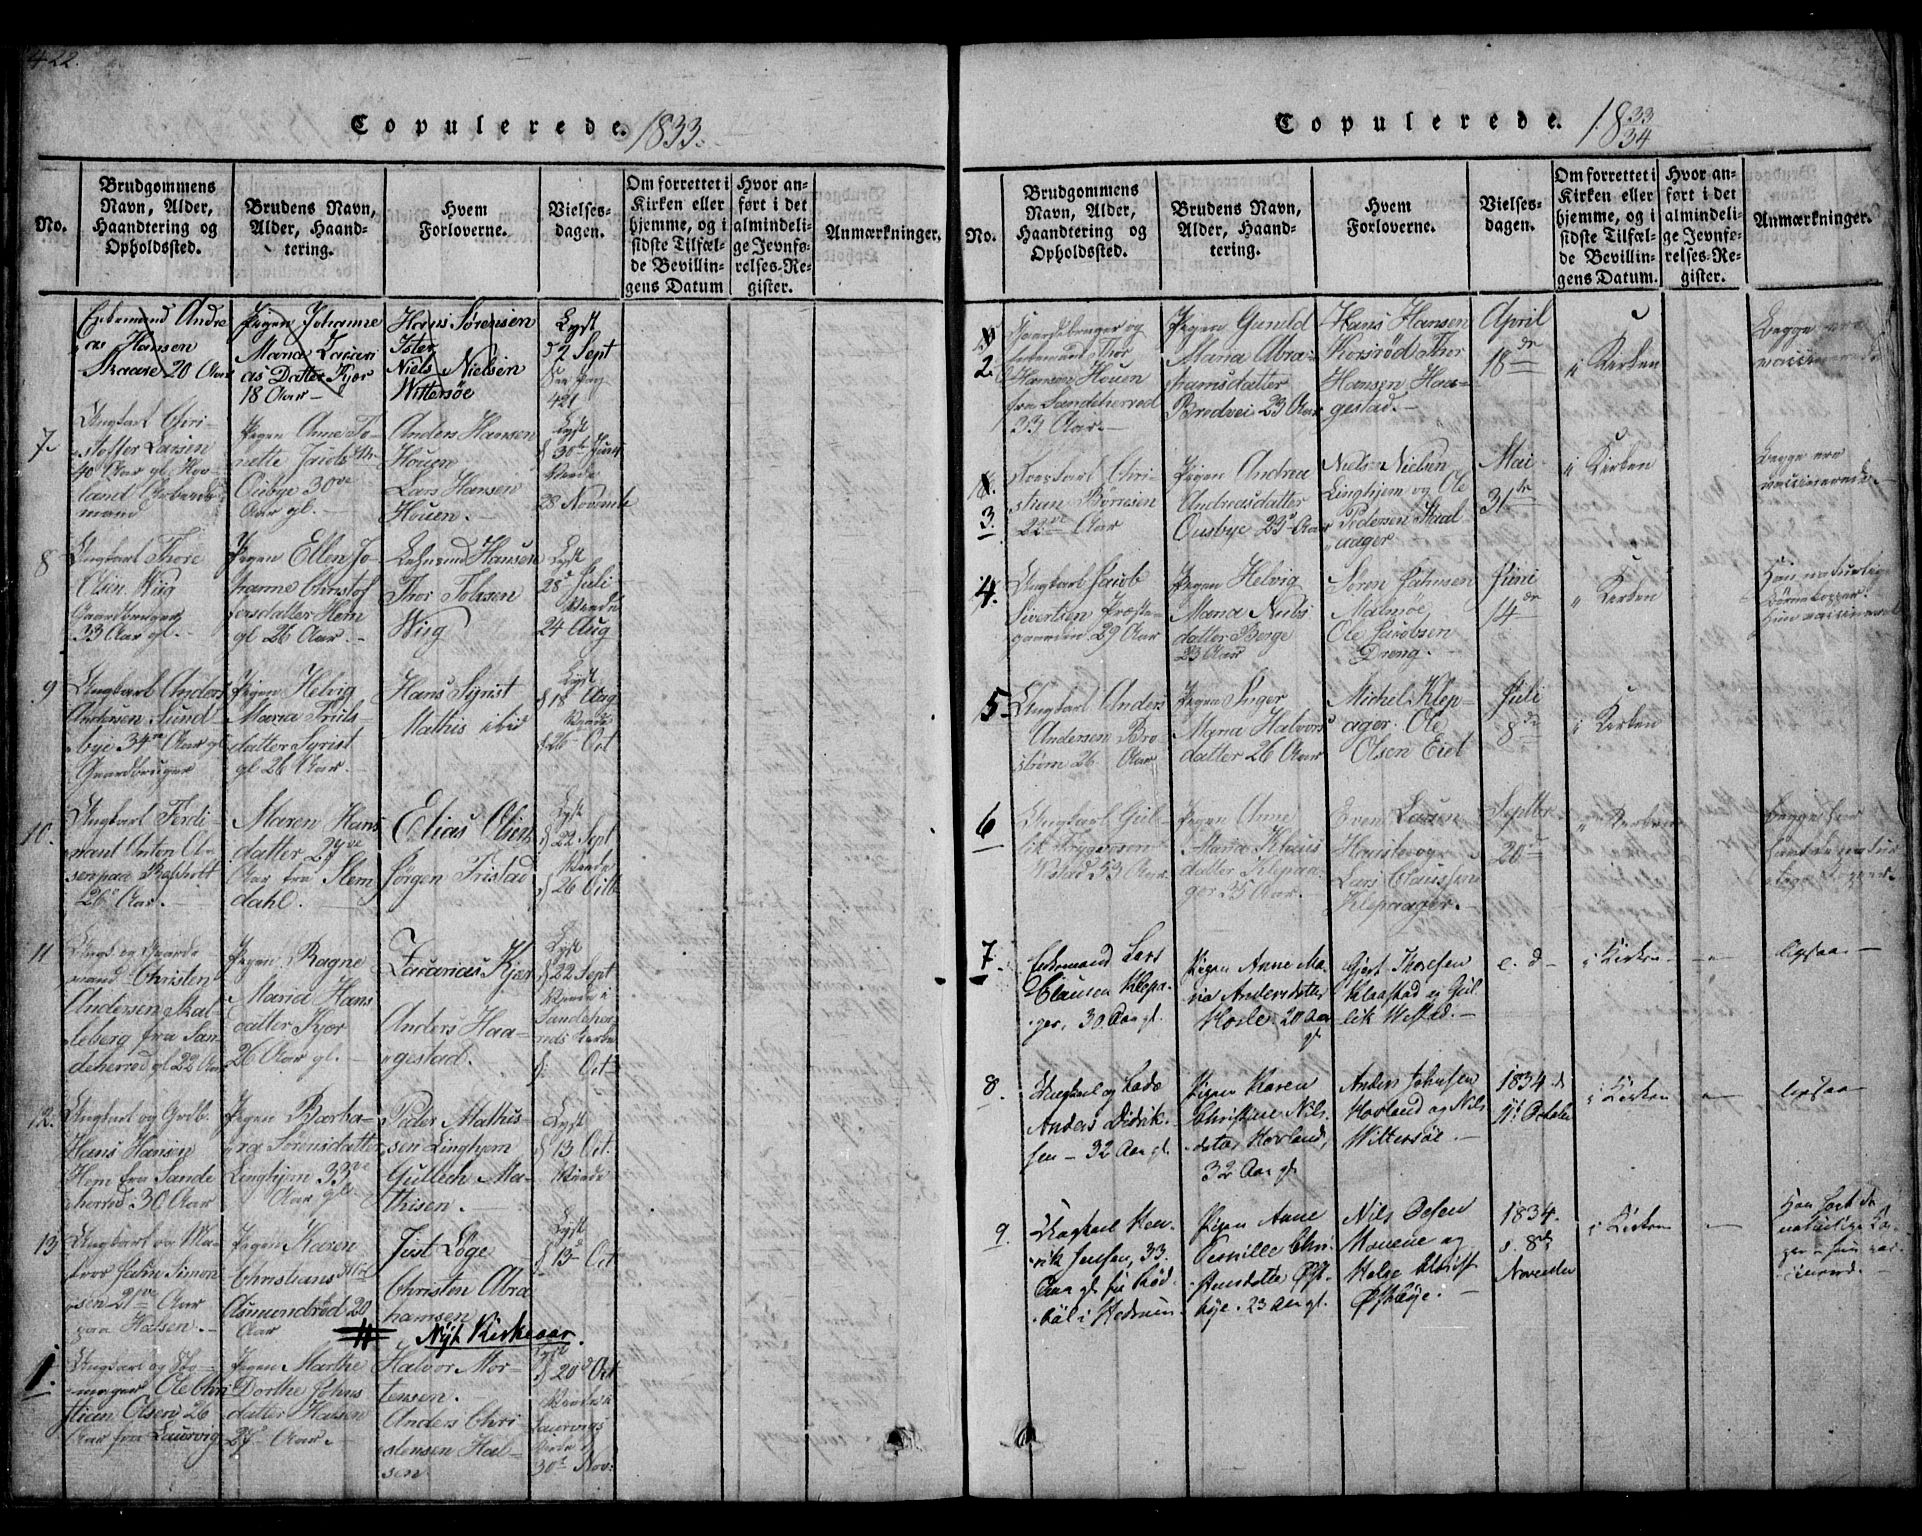 422.
Copulerede. 1833.
No.
Brudgommens
Navn, Alder,
Haandtering og
Opholdssted.
Brudens Navn,
Alder, Haand-
tering.
Hvem
Forloverne.
Vielses-
dagen.
Om forrettet i
Kirken eller
hjemme, og i
sidste Tilfæl-
de Bevillin-
gens Datum
Hvor an-
ført i det
almindeli-
ge Jevnfø-
relses-Re-
gister.
Anmærkninger.
Andre
as Hansen
Skaare 20 Aar
Pigen Johanne
Maria Zacari
as Datter Kjær
18 Aar
Hans Sørensen
Ister
Niels Nielsen
Wittersøe
Lyst
2 Sept
See Pag
421
7
Ungkarl Chri-
stoffer Larsen
40 Aar gl.
Pigen Anne To-
nette
Ousbye 30ve
Aar gl.
Anders Hansen
Houen
Lars Hansen
Houen.
Lyst
30te Juni
Viede
28 Novembr
8
Ungkarl Thore
Olsen Wiig
Gaardbruger
33 Aar gl.
Pigen Ellen Jo-
hanne Christof
ersdatter Hem
gl 26 Aar.
Hansen
Thor
Wiig
Lyst
28 Juli
Viede
24 Aug
9
Ungkarl Anders
Andersen Sund-
bye 34 Aar gl
Gaardbruger
Pigen Helvig
Maria Truls-
datter Syrist
gl 26 Aar.
Hans Syrist
Mathis ibid
Lyst
18 Aug
Viede
26 Oct
10.
Ungkarl Ferdi-
nant Anton Ol-
sen paa
26 Aar.
Maren Hans
datter 27ve
Aar fra Slem
dahl.
Elias Olsen
Jørgen Fristad
Lyst
22 Sept
Viede
26 Octb
11
mand Christen
Andersen Skal-
leberg fra San
deherred gl 22 Aar
Pigen Ragne
Maria Hans
datter Kjær
26 Aar gl.
Zacarias Kjær
Anders Haa-
gestad.
Lyst
22 Sept
Viede i
Sandeher-
reds Kirke
Oct
12.
Ungkarl og Grdb.
Hans Hansen
Hem fra Sande
herred 30 Aar
Pigen Barba-
ra Sørensdatter
Linghjem 33ve
Aar gl.
Peder Mathis-
sen Linghjem
Gullech Ma-
thisen.
Lyst
13 Oct.
Viede
13
Ungkarl og Ma-
Simon-
sen 21ve Aar
paa Halsen.
Pigen Karen
Christians
Asmundrød 20
Aar
Just Løge
Christen Abra
hamsen
Lyst
13 Oct
Nyt Kirkeaar.
1.
Ungkarl og Sko-
mager Ole Chri
stian Olsen 26
Aar fra Laurvig
Pigen Marthe
Dorthe Johns
datter Halsen
27 Aar.
Halvor Mor-
tensen.
Anders Chri-
stensen Hal-
sen
Lyst
20 Oct
Viede i
Laurvigs
Kirke
30t Nov:
Copulerede. 1833
34
No.
Brudgommens
Navn, Alder,
Haandtering og
Opholdssted.
Brudens Navn,
Alder, Haand-
tering.
Hvem
Forloverne.
Vielses-
dagen.
Om forrettet i
Kirken eller
hjemme, og i
sidste Tilfæl-
de Bevillin-
gens Datum.
Hvor an-
ført i det
almindeli-
ge Jevnfø-
relses-Re-
gister.
Anmærkninger.
2.
Gaardbruger og
Thor
Hansen Houen
fra Sandeherred
33 Aar.
Pigen Gunild
Maria Abra-
hamsdatter
Bredvei 23 Aar
Hans Hansen
Korsrød Thor
Hansen Haa-
gestad.
April
18de
i Kirken
Begge ere
vaccinerede
3.
Ungkarl Chri-
stian Børresen
22ve Aar
Pigen Andrea
Andreasdatter
Ousbye 23 Aar
Niels Nielsen
Linghjem og Ole
Pedersen Skal
aager
Mai
31te
i Kirken
Begge ere
vaccinerede.
4.
Ungkarl Jacob
Sivertsen Præste-
gaarden 29 Aar
Pigen Helvig
Maria Niels
datter Berge
23 Aar
Soren
Malmøe
Ole Jacobsen
Dreng.
Juni
14de
i Kirken
Han naturlige
Børnekopper
hun vaccineret
5
Ungkarl Anders
Andersen Bro
strøm 26 Aar
Pigen Inger
Maria Halvors
datter 26 Aar
Michel Klep-
ager. Ole
Olsen Eiet
Juli
8de
i Kirken
6
Ungkarl Gul-
lik Trygersen
Westad 53 Aar.
Pigen Anne
Maria Klaus
datter Klepaa-
ger 35 Aar.
Even Larsen
Lars Claussen
Klepaager.
Septbr
20de
i Kirken
Begge har
havt de natur
lige Kopper.
7.
Enkemand Lars
Clausen Klepa-
ger, 30 Aar gl.
Pigen Anne Ma-
ria Andersdatter
20 Aar
gl
Gjert Thorsen
Klaastad og Gul-
lik Westad.
e. d
i Kirken
ligesaa
8.
Ungkarl og
Anders Didrik-
sen – 32 Aar gl.
Pigen Karen
Christine Nils-
datter Hovland,
32 Aar gl.
Anders Johnsen
Hovland og Nils
Wittersøe.
1834 d
11t October
i Kirken
ligesaa
9.
Ungkarl Hen-
rik Jensen, 33
Aar gl fra Rød-
bøl i Hedrum
Pigen Anne
Pernille Chri-
stensdatter Øst-
bye. 23 Aar gl.
Nils Olsen
og
Helge
Østbye.
1834.
d. 8de
November
i Kirken
Han havt de
naturlige Kop-
per – hun vac-
cineret.